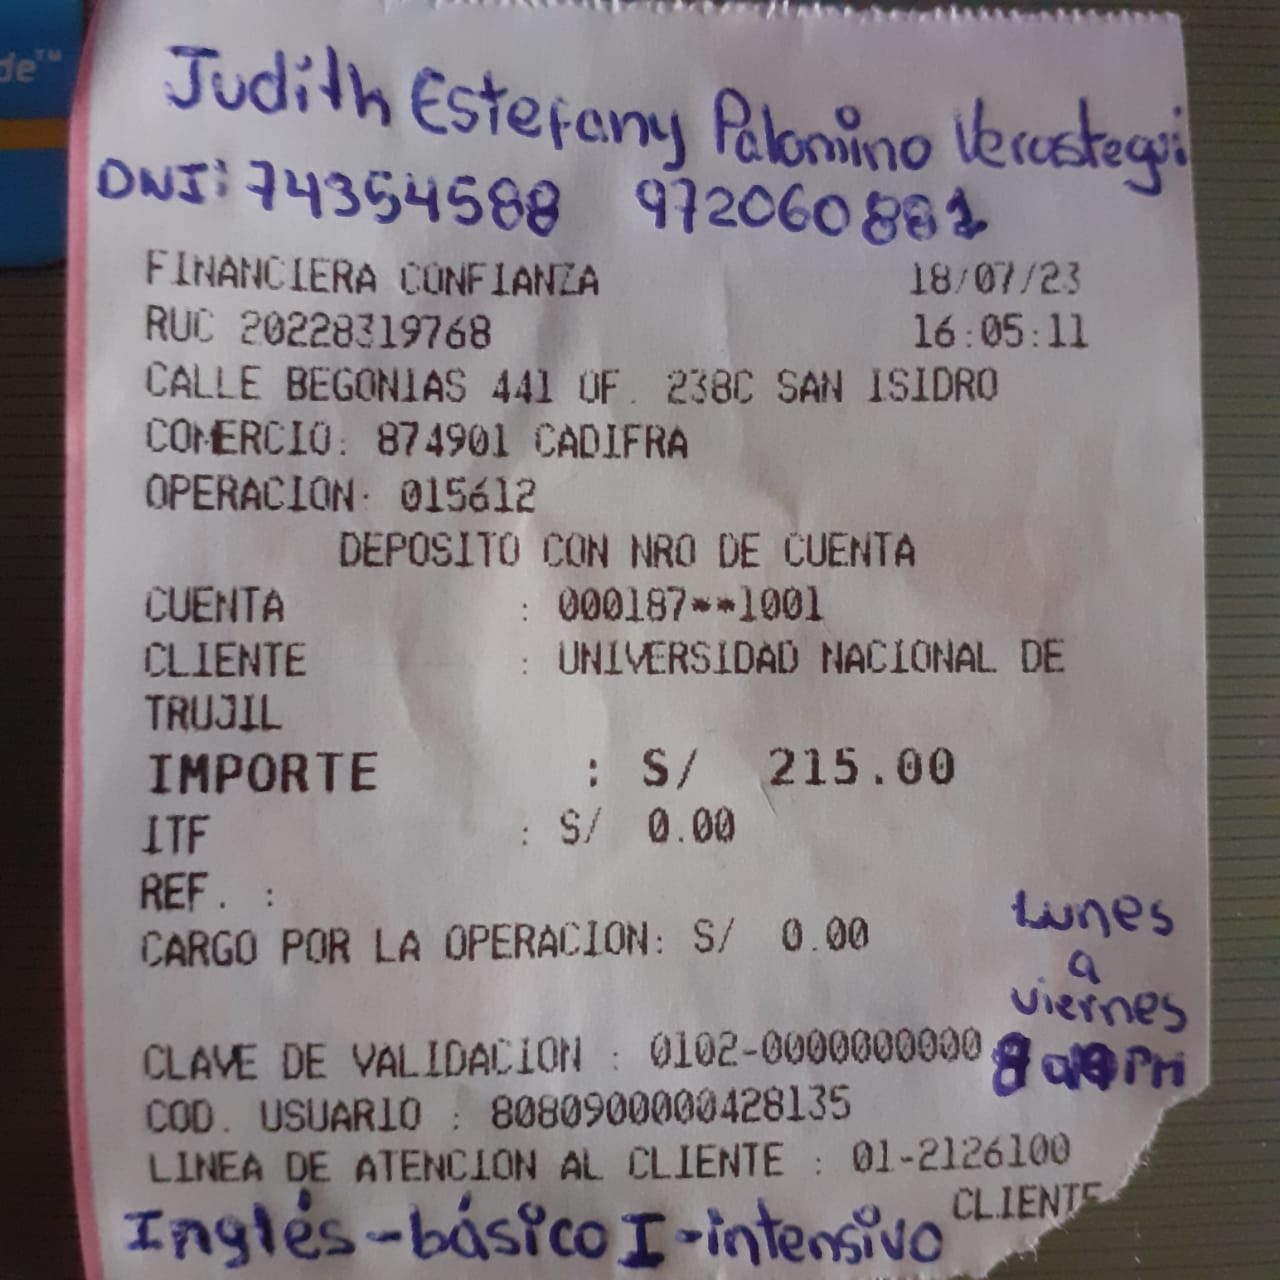 de™
Judith Estefany Palomino Verastegui
DNI: 74354588 972060881
FINANCIERA CONFIANZA 18/07/23
RUC 20228319768 16:05:11
CALLE BEGONIAS 441 OF. 238C SAN ISIDRO
COMERCIO: 874901 CADIFRA
OPERACION: 015612
DEPOSITO CON NRO DE CUENTA
CUENTA : 000187**1001
CLIENTE : UNIVERSIDAD NACIONAL DE
TRUJIL
IMPORTE : S/ 215.00
ITF : S/ 0.00
REF. :
CARGO POR LA OPERACION: S/ 0.00
Lunes
a
viernes
8 a PM
CLAVE DE VALIDACION : 0102-0000000000
COD. USUARIO : 8080900000428135
LINEA DE ATENCION AL CLIENTE : 01-2126100
CLIENTE
Inglés-básico I-intensivo